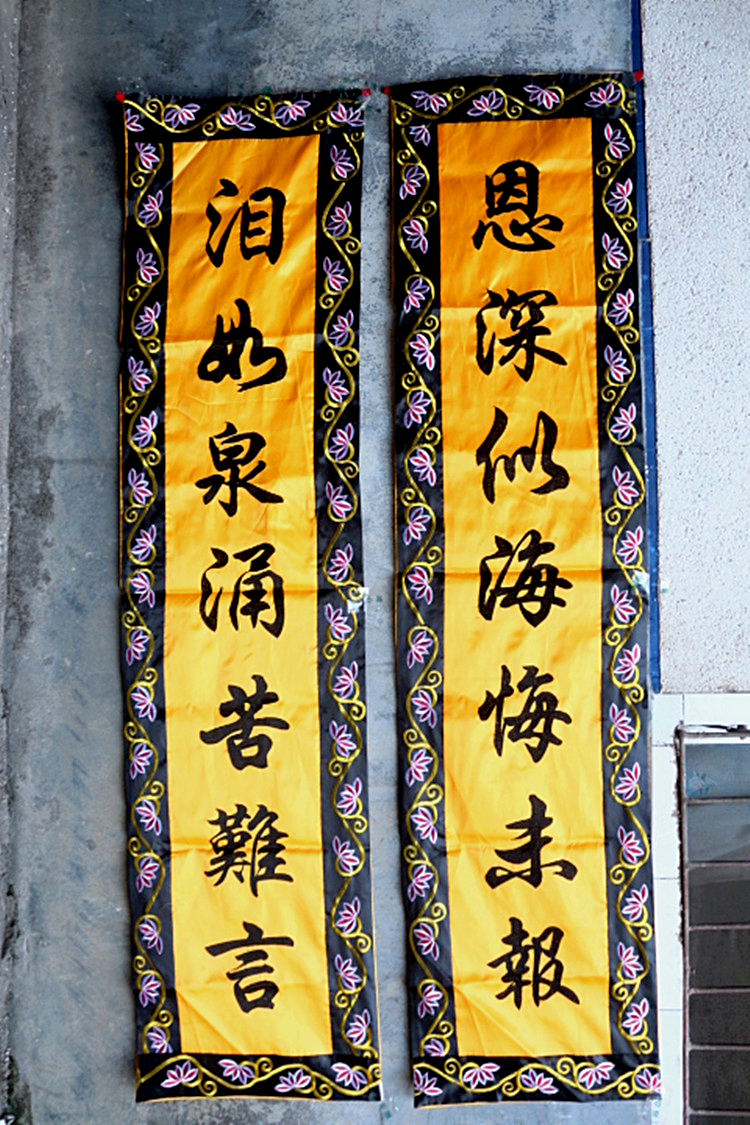 恩深似海悔未報
泪如泉涌苦難言